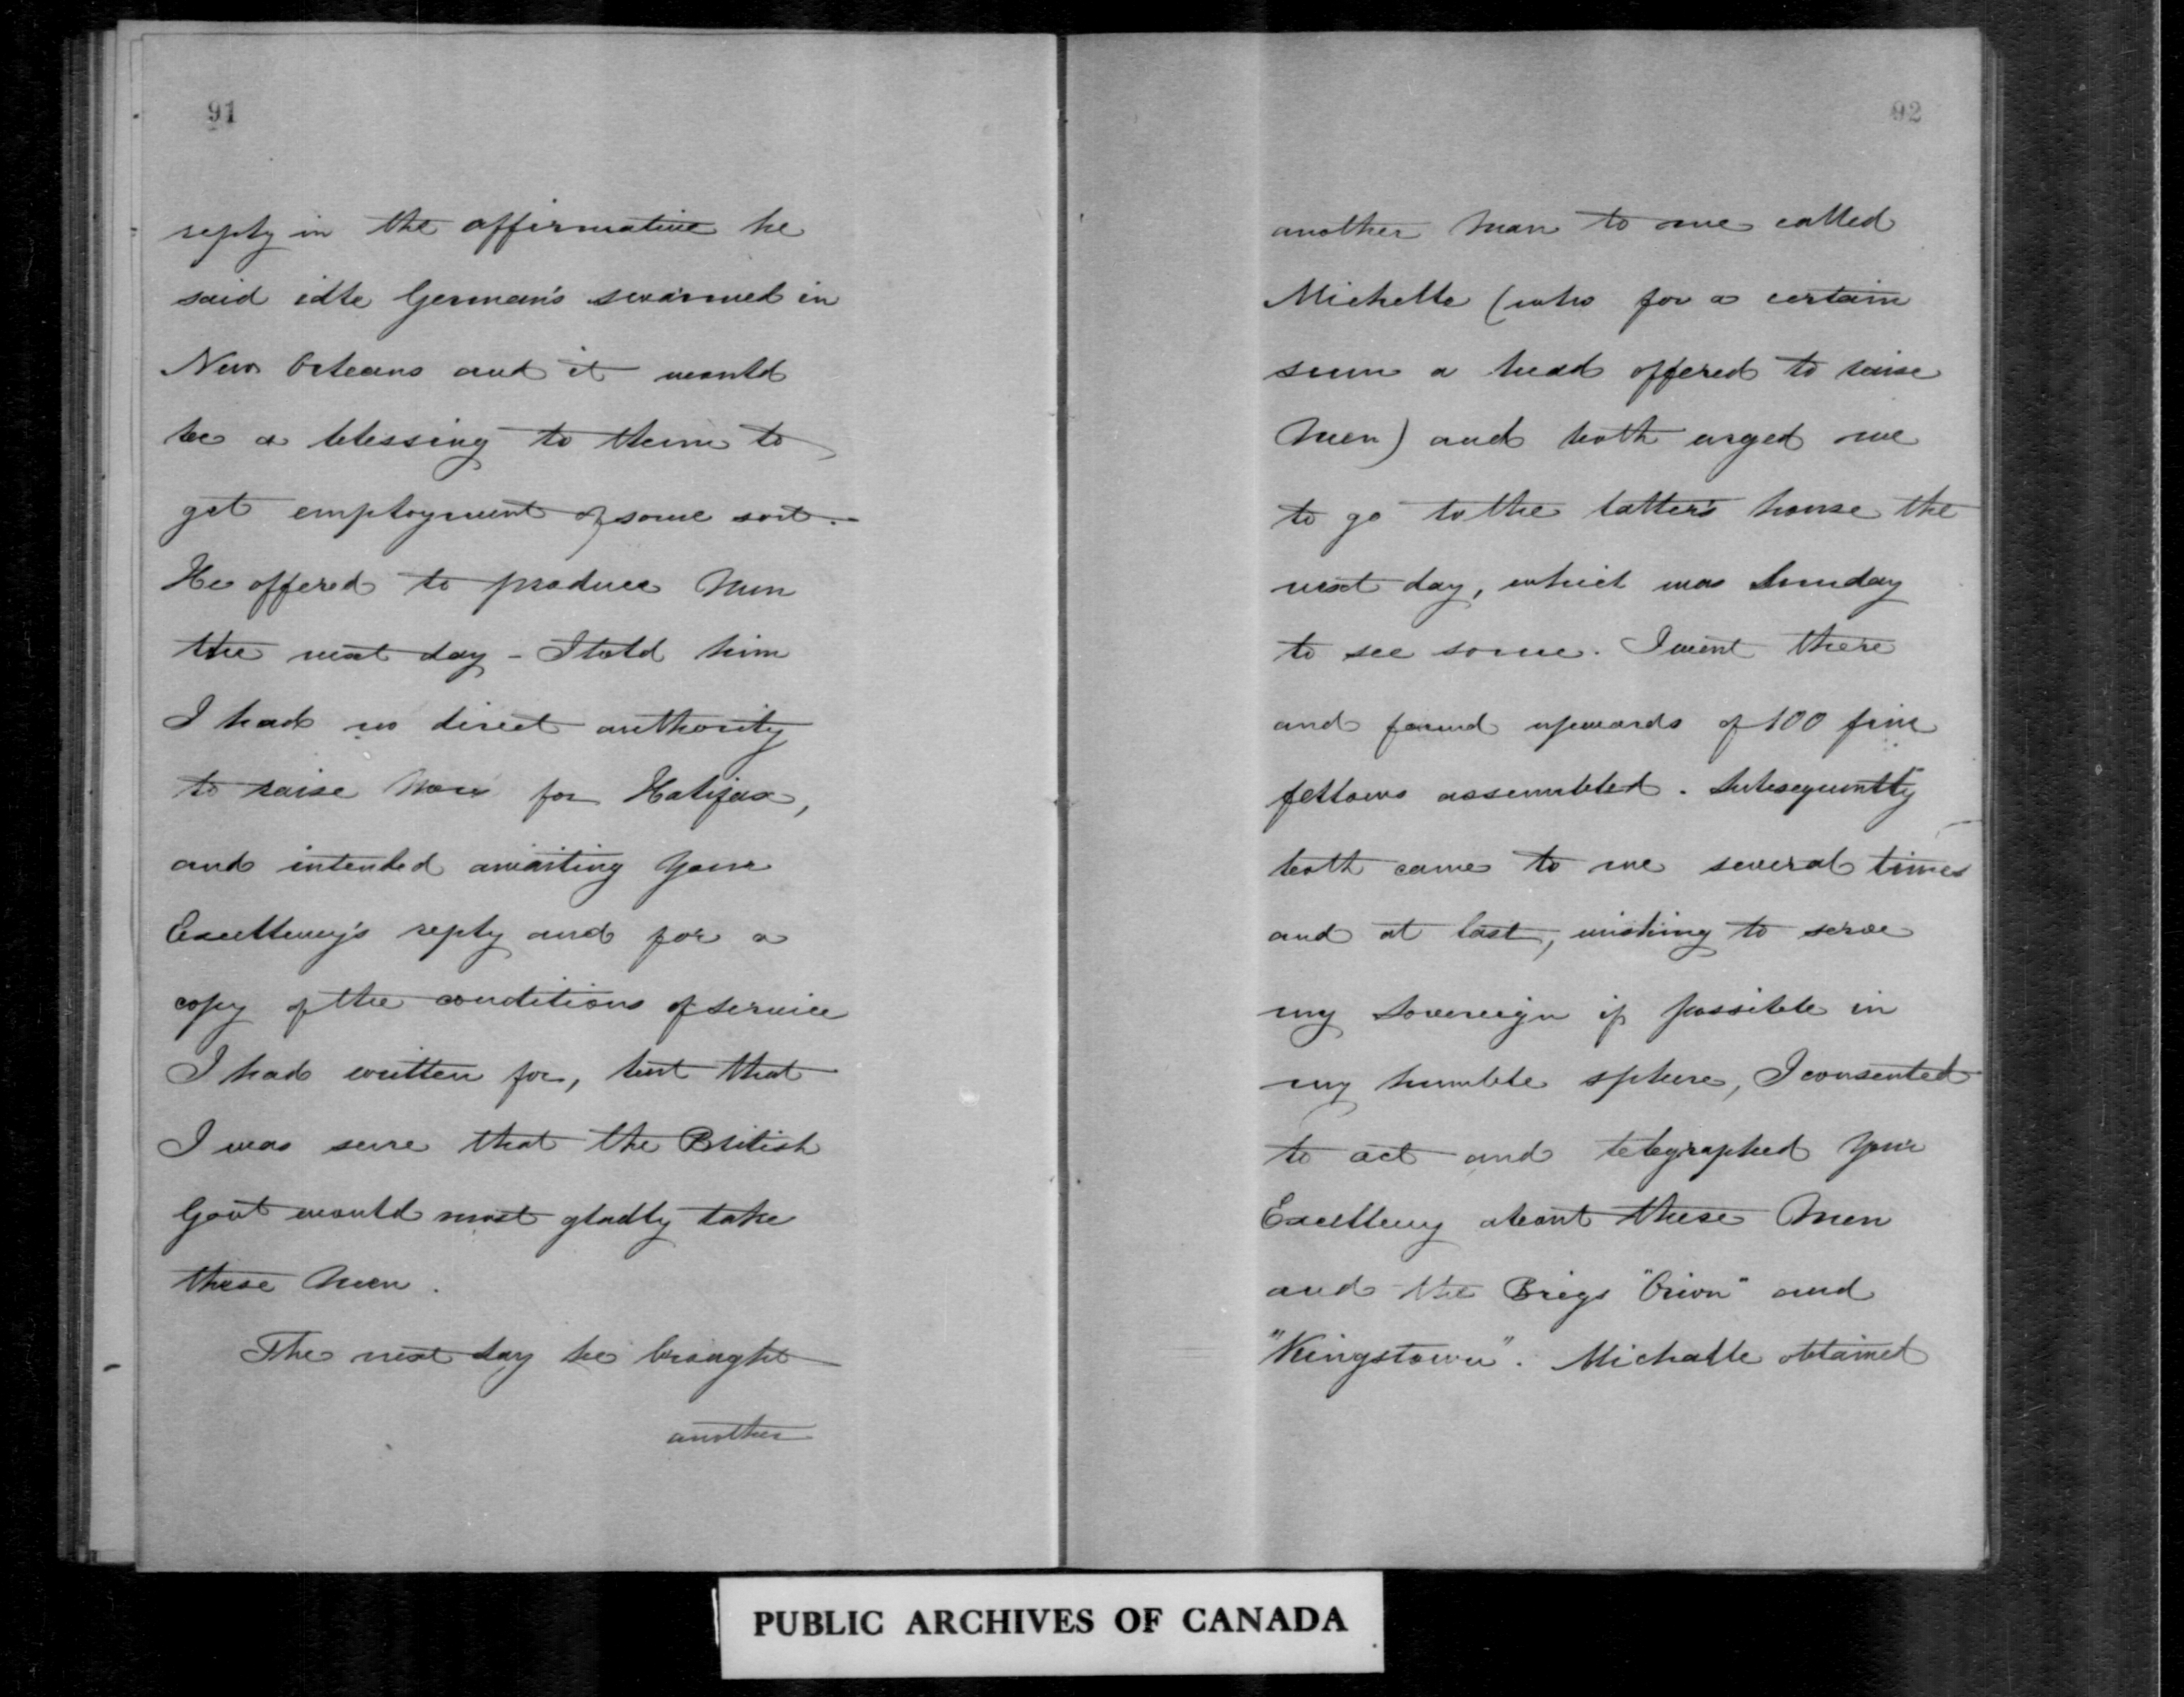 91
reply in the affirmative he
said idle German's swarmed in
New Orleans and it would
be a blessing to them to
get employment of some sort.
He offered to produce Men
the next day - I told him
I had no direct authority
to raise Men for Halifax,
and intended awaiting Your
Excellency's reply and for a
copy of the conditions of service
I had written for, but that
I was sure that the British
Govt would most gladly take
these Men.
The next day he brought
another
92
another Man to me called
Michelle (who for a certain
sum a head offered to raise
Men) and both urged me
to go to the latter's house the
next day, which was Sunday
to see some. I went there
and found upwards of 100 fine
fellows assembled. Subsequently
both came to me several times
and at last, wishing to serve
my Sovereign if possible in
my humble sphere, I consented
to act and telegraphed Your
Excellency about these Men
and the Brigs "Orion" and
"Kingstown". Michalle obtained
PUBLIC ARCHIVES OF CANADA